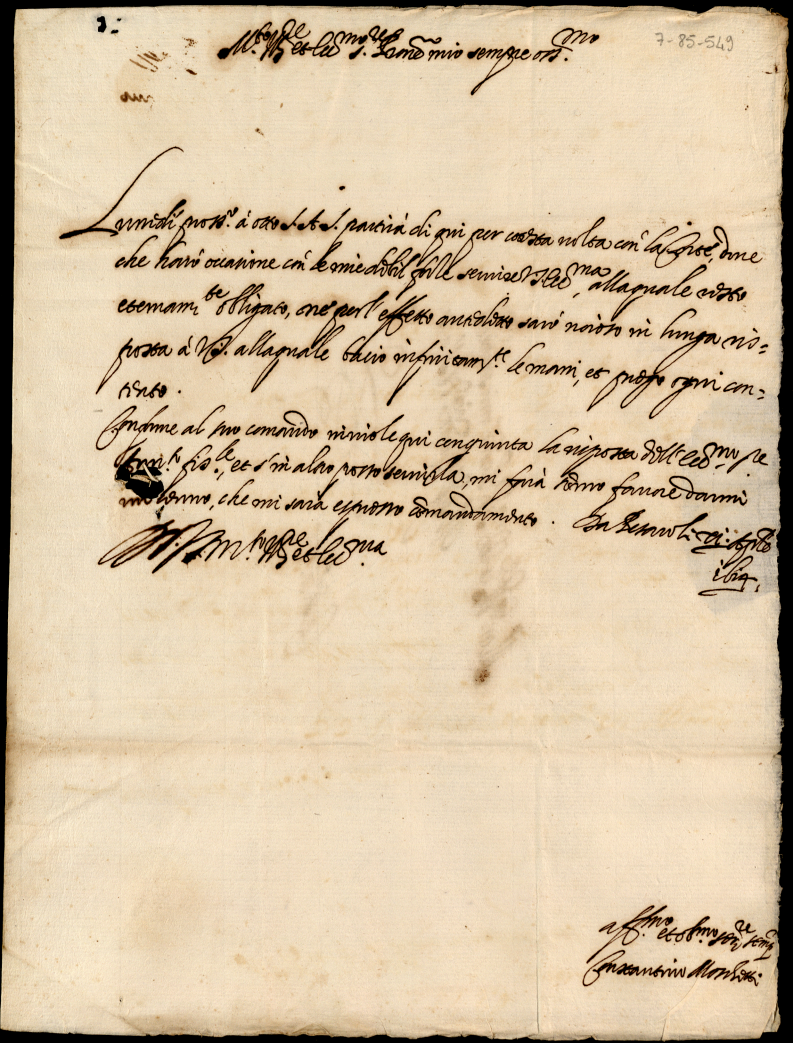 7-85-549
M.to Ill.re et Ecc.mo S.re Pron mio sempre oss.mo
Lunedi pross.o à otto S.A.S. partirà di qui per cotesta volta con la Corte, dove
che havrò occasione con le mie debil forze servire V.S. Ecc.ma, alla quale resto
eternam.te obligato, ne per l'effetto antedetto sarò noioso in lunga ris=
posta à V.S. alla quale bacio infinitam.te le mani, et prego ogni con=
tento.
Conforme al suo comando inviole qui congiunta la risposta dell' Ecc.mo
et s' in altro posso servirla, mi farà favore darmi
un cenno, che mi sarà espresso comandamento. Da
D. V.S. m.to Ill.re et Ecc.ma
aff.mo et obl.mo ser.re
Constantino